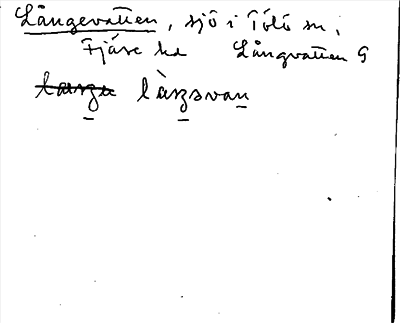 Långevatten, sjö i Tölö sn,
Fjäre hd Långvatten G
làꞃꝫsvan